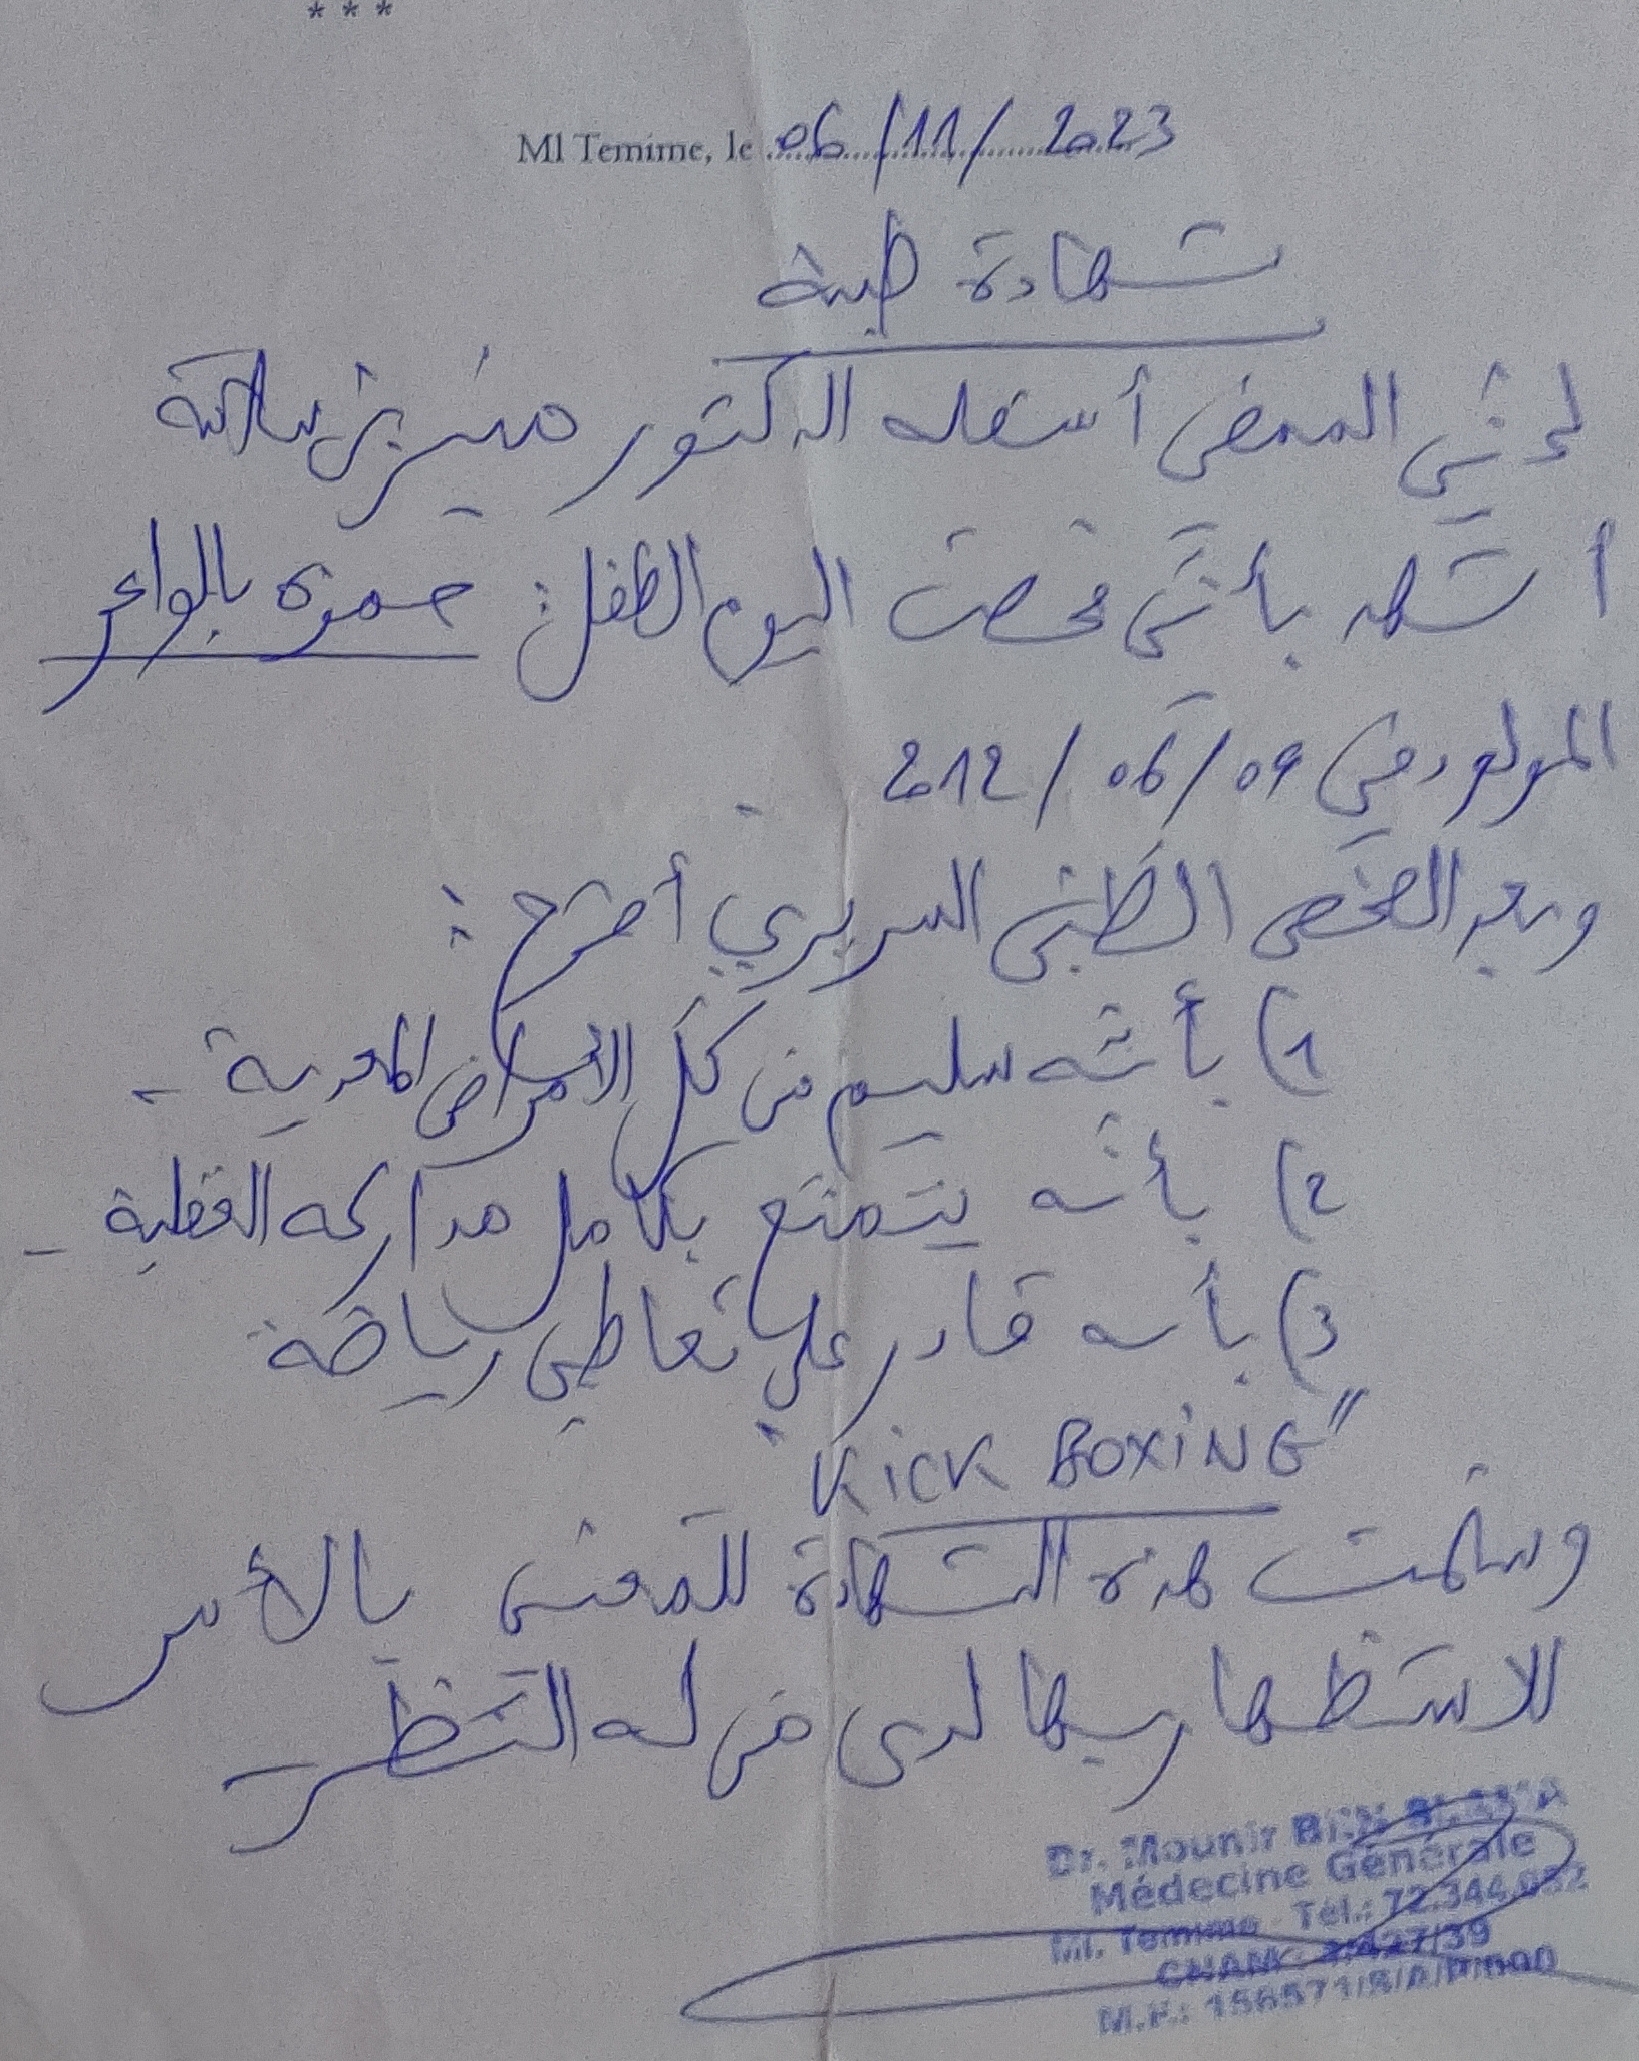 ***
Ml Temime, le 06/11/2023
شهادة طبية
إنّي الممضي أسفله الدكتور منير بن سلامة
أشهد بأنّي فحصت اليوم الطفل: حمزة بالواعر
المولود في 09/06/2012
وبعد الفحص الطّبّي السريري أصرّح:
1) بأنّه سليم من كلّ الأمراض المعدية -
2) بأنه يتمتع بكامل مداركه العقلية -
3) بأنه قادر على تعاطي رياضة
"KiCK BOXiNG"
وسلّمت هذه الشهادة للمعني بالأمر
للاستظهار بها لدى من له النّظر
Dr. Mounir BEN SLAMA
Médecine Générale
Ml. Temime - Tél.: 72.344.032
CNAM: 27/39
M.F.: 156571/